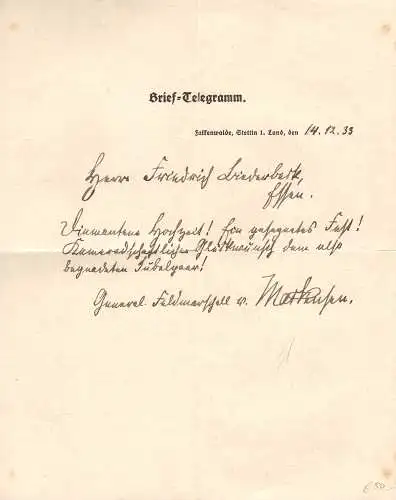 Brief-Telegramm.
Falkenwalde, Stettin 1. Land, den 14.12.33
Herrn Friedrich Biederbeck,
Essen.
Diamantene Hochzeit! Ein gesegnetes Fest!
Kameradschaftlichen Glückwunsch dem also
begnadeten Jubelpaar!
General Feldmarschall v. Mackensen.